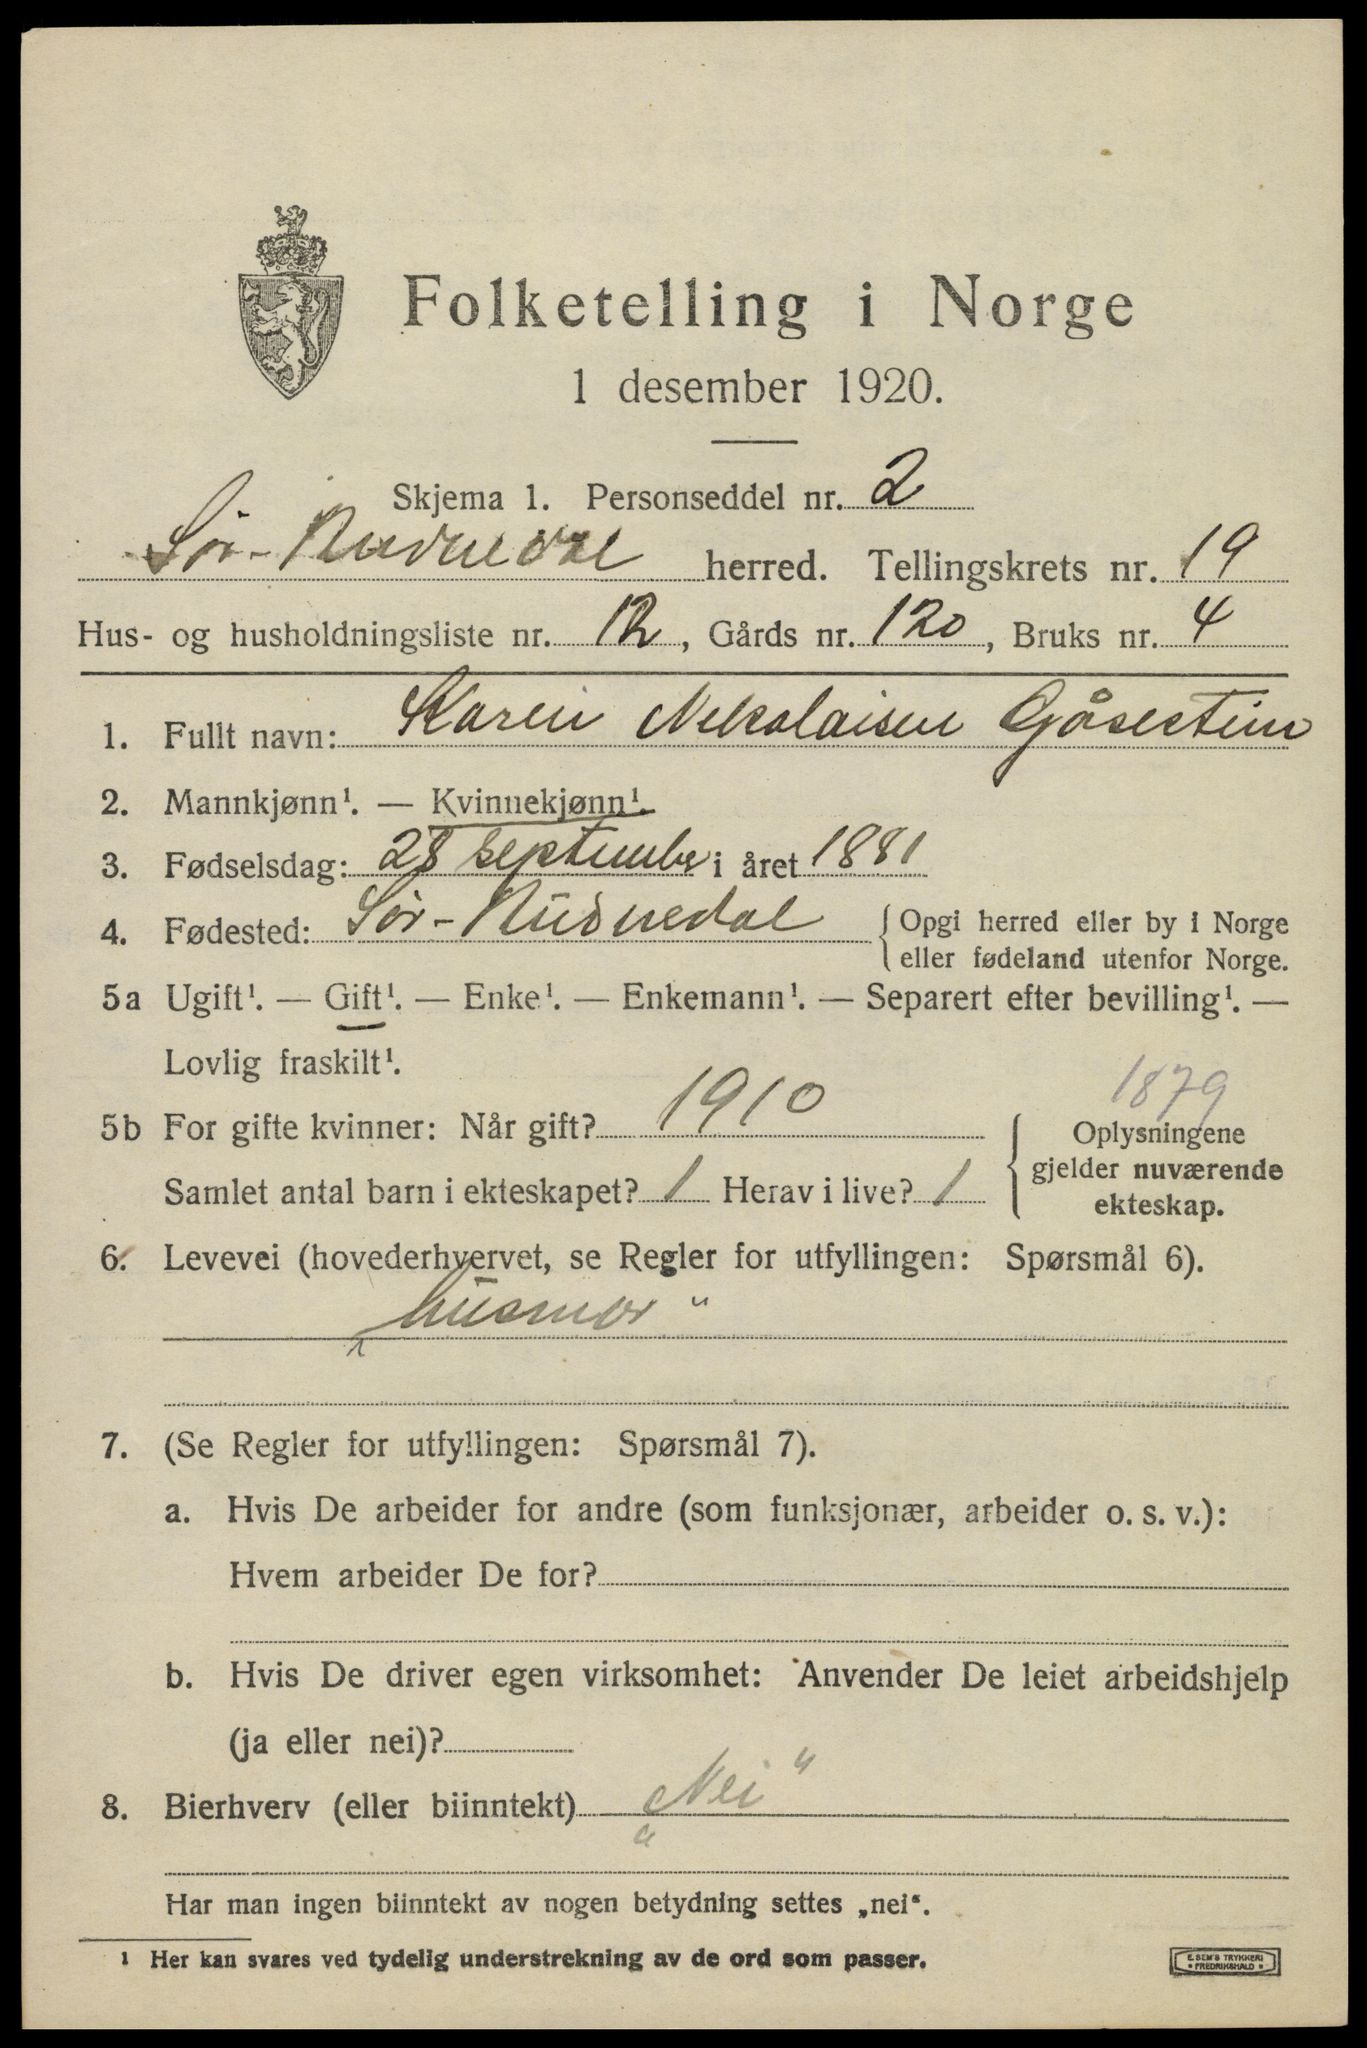 Folketelling i Norge
1 desember 1920.
Skjema 1. Personseddel nr. 2
Sør-Audnedal herred. Tellingskrets nr. 19
Hus- og husholdningsliste nr. 12, Gårds nr. 120, Bruks nr. 4
1. Fullt navn: Karen Nikolaisen Gåsestein
2. Mannkjønn¹. — Kvinnekjønn¹.
3. Fødselsdag: 28 september i året 1881
4. Fødested: Sør-Audnedal { Opgi herred eller by i Norge
eller fødeland utenfor Norge.
5a Ugift¹. — Gift¹. — Enke¹. — Enkemann¹. — Separert efter bevilling¹. —
Lovlig fraskilt¹.
1879
5b For gifte kvinner: Når gift? 1910 { Oplysningene
gjelder nuværende
ekteskap.
Samlet antal barn i ekteskapet? 1 Herav i live? 1
6. Levevei (hovederhvervet, se Regler for utfyllingen: Spørsmål 6).
„husmor“
7. (Se Regler for utfyllingen: Spørsmål 7).
a. Hvis De arbeider for andre (som funksjonær, arbeider o. s. v.):
Hvem arbeider De for?
b. Hvis De driver egen virksomhet: Anvender De leiet arbeidshjelp
(ja eller nei)?
8. Bierhverv (eller biinntekt) „Nei“
Har man ingen biinntekt av nogen betydning settes „nei“.
¹ Her kan svares ved tydelig understrekning av de ord som passer.
E. SEM'S TRYKKERI
• FREDRIKSHALD •